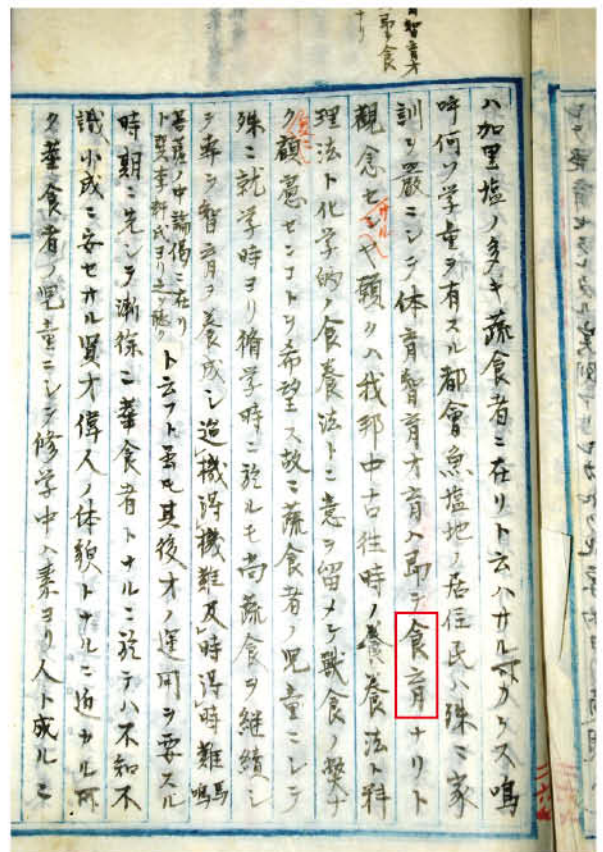 智育才
即食
ナリ
ハ加里塩ノ多キ蔬食者ニ在リト云ハサルヘカラス嗚
呼何ソ学童ヲ有スル都會魚塩地ノ居住民ハ殊ニ家
訓ヲ嚴ニシテ体育智育才育ハ即チ食育ナリト
觀念セ サルヤ願クハ我邦中古往時ノ食養法ト料
理法ト化学的ノ食養法トニ意ヲ留メテ獣食ノ弊ナ
ク顧慮センコトヲ希望ス故ニ蔬食者ノ児童ニシテ
殊ニ就学時ヨリ脩学時ニ於ルモ尚蔬食ヲ継續シ
テ專ラ智育ヲ養成シ迨機得機難及時得時難
菩薩ノ中論偈ニ在リ
氏ヨリ之ヲ聴ク
ト云フト雖モ其後才ノ運用ヲ要スル
時期ニ先ンテ漸徐ニ葷食者トナルニ於テハ不知不
識小成ニ安セサル賢才偉人ノ体貌トナルニ
ク葷食者ノ児童ニシテ修学中ハ素ヨリ人ト成ルニ